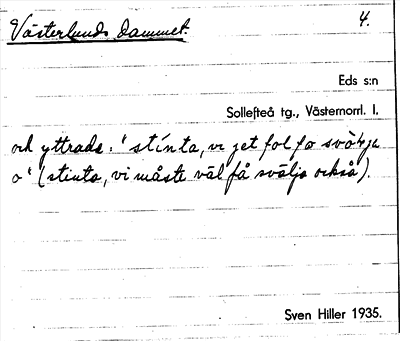 Västerlunds Dammet. 4.
Eds s:n
Sollefteå tg., Västernorrl. l.
och yttrade: "stínta, vi jet fol fo
o" (stinta, vi måste väl få svälja också).
Sven Hiller 1935.